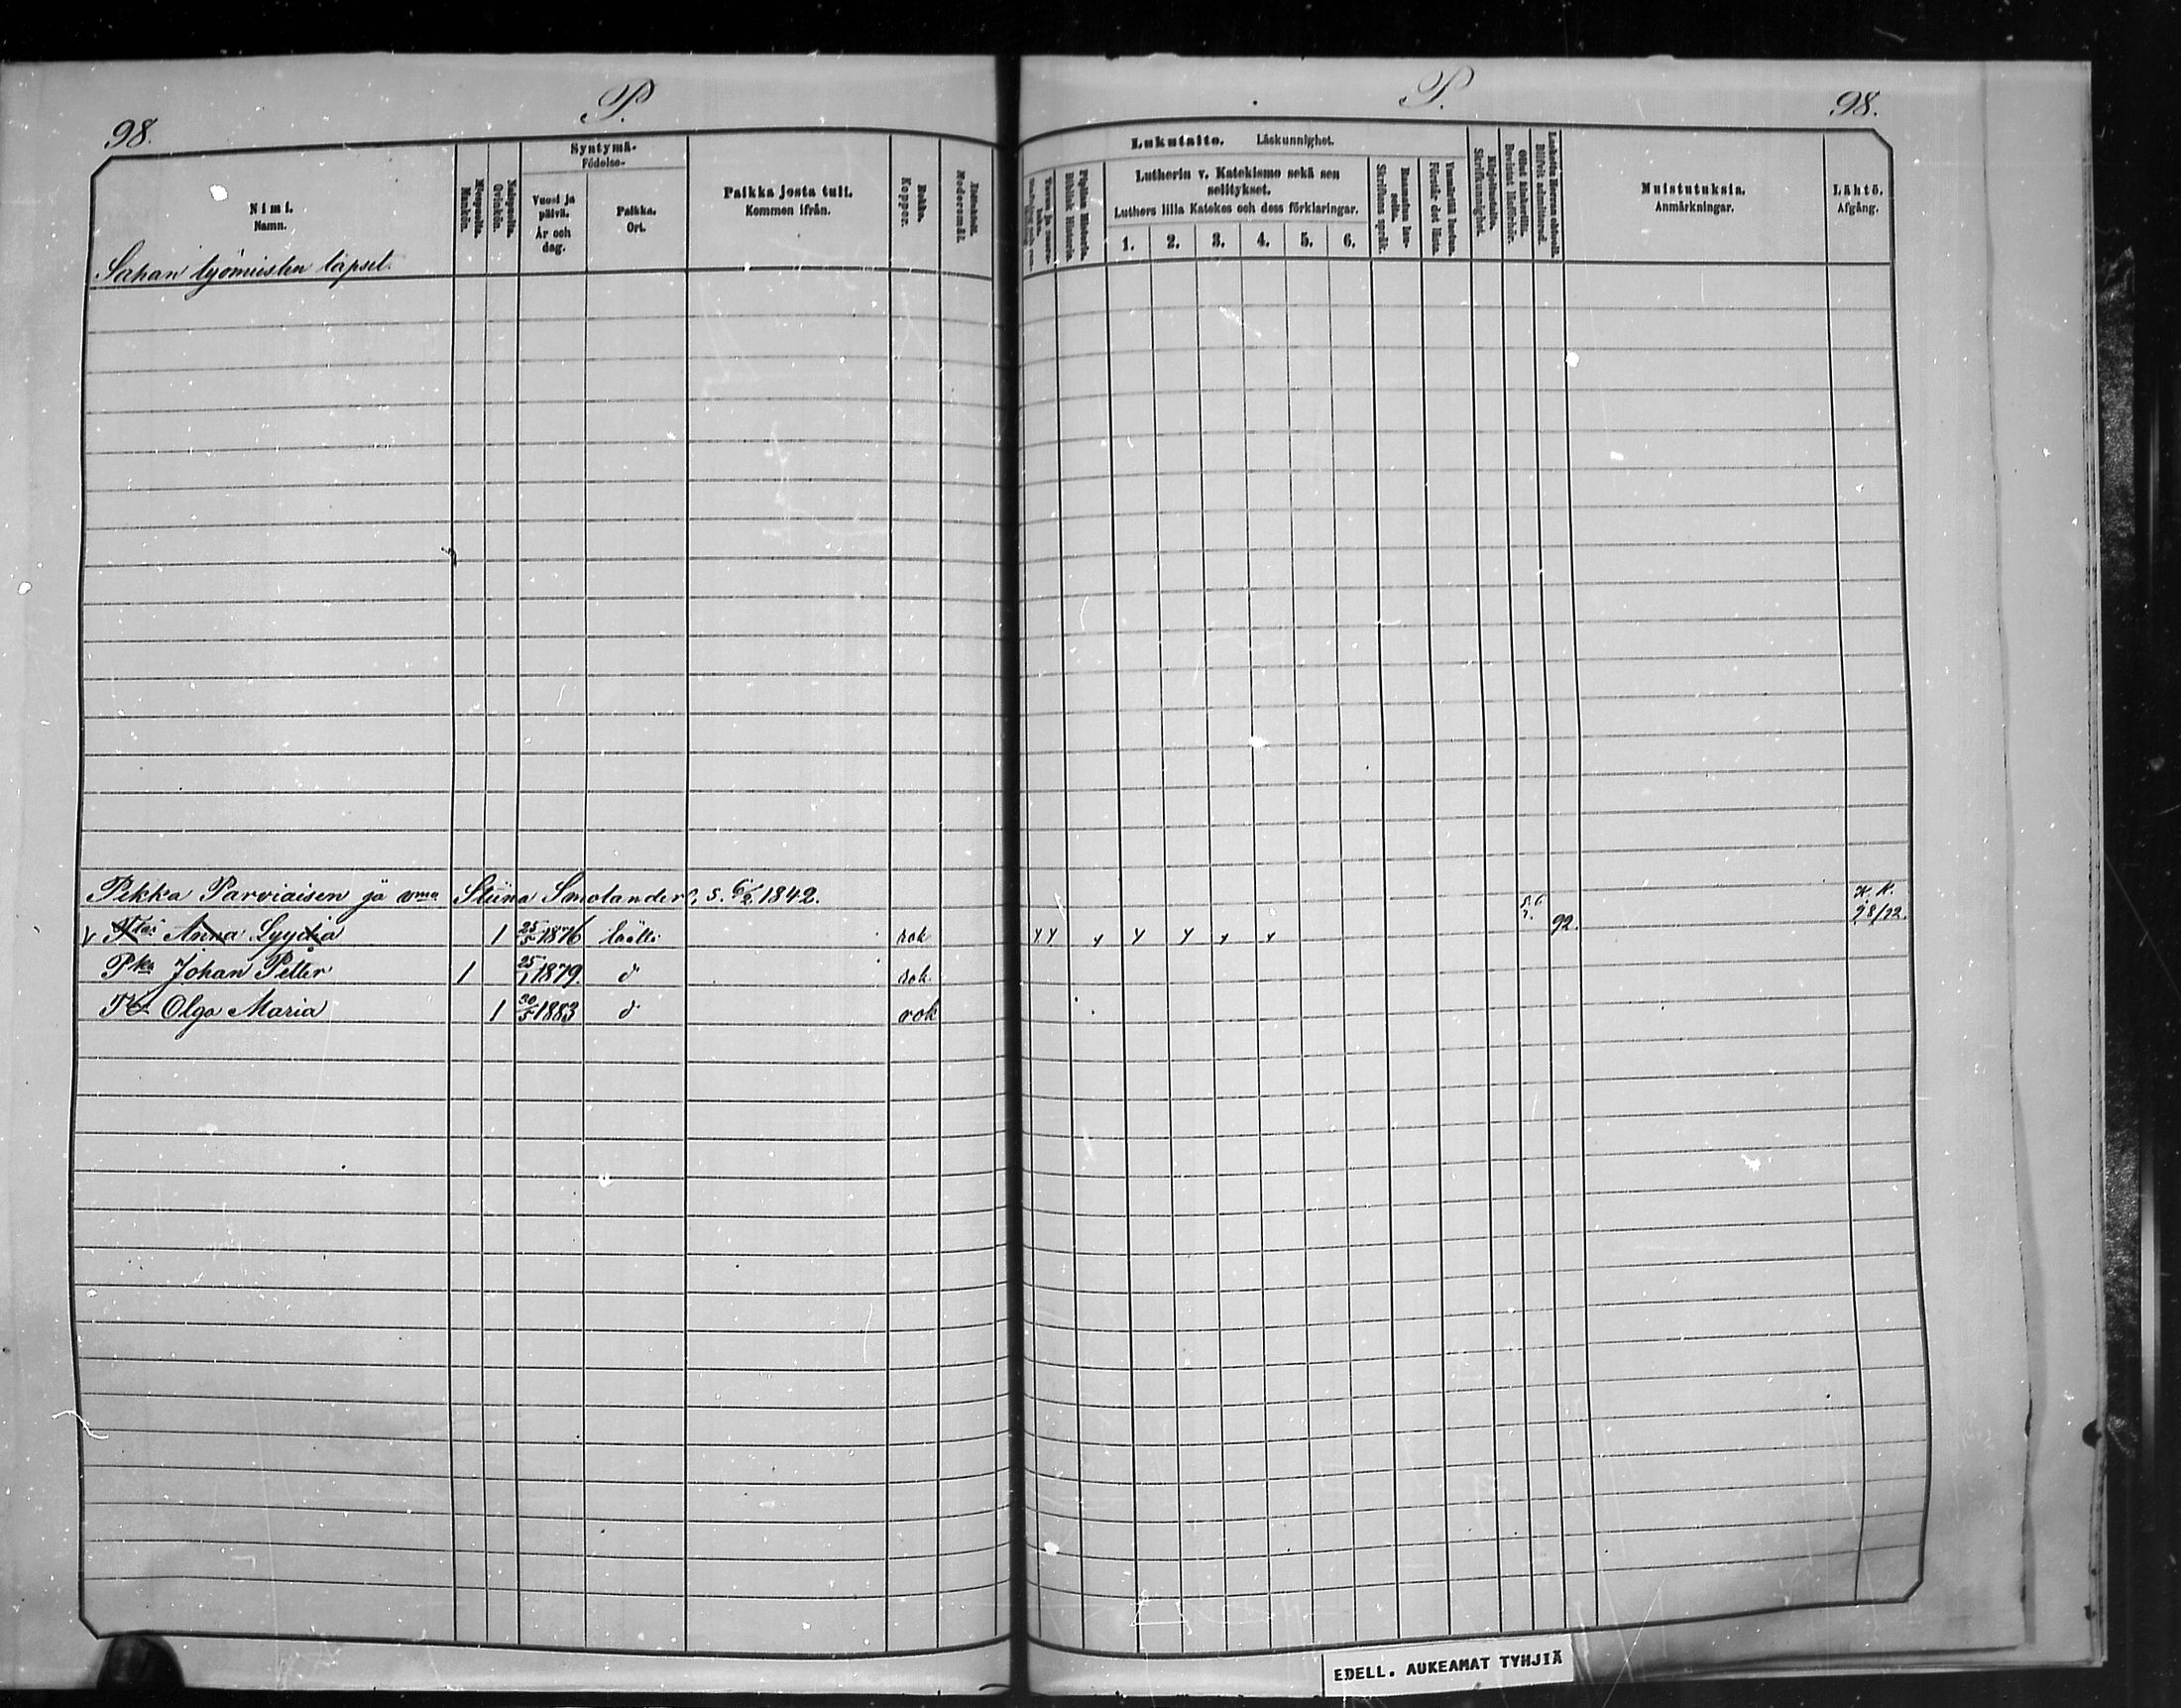 98. P. P. 98.
Nimi. Namn.
Miespuolta. Mankön.
Naispuolta. Qvinkön.
Syntymä- Födelse-
Vuosi ja päivä. År och dag.
Paikka. Ort.
Paikka josta tuli. Kommen ifrån.
Rokko. Koppor.
Modersmål.
Lukutaito. Läskunnighet.
Piplian Historia. Biblisk Historia.
Lutherin v. Katekismo sekä sen selitykset.
Luthers lilla Katekes och dess förklaringar.
1. 2. 3. 4. 5. 6.
Skriftens språk.
Ymmärtää luetun. Förstår det lästa.
Kirjoitustaito. Skrifkunnighet.
Bevistat läsförhör.
Blifvit admitterad.
Muistutuksia. Anmärkningar.
Lähtö. Afgång.
Sahan työmiesten lapset.
Pekka Parviaisen ja vmon Stiina Smolander, s. 6/2 1842.
Anna Lyydia 1 25/5 1876 rok 92. 98/92.
Pka Johan Petter 1 25/1 1879. d rok
Olga Maria 1 30/5 1883 d rok
EDELL. AUKEAMAT TYHJIÄ